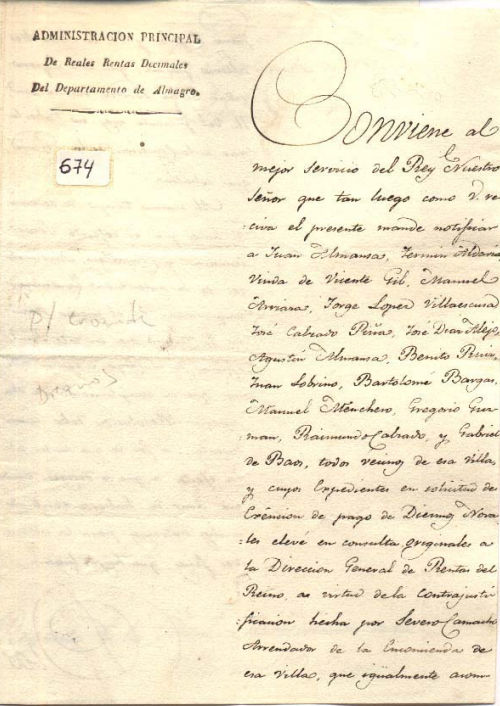 ADMINISTRACION PRINCIPAL
De Reales Rentas Decimales
Del Departamento de Almagro.
674
Conviene al
mejor servicio del Rey Nuestro
Señor que tan luego como V. re
civa el presente mande notificar
a Juan Almansa, Fermin Aldaria
Viuda de Vicente Gil, Manuel
Arviara, Jorge Lopez Villaescusa
José Calzado Peña, José Diaz Alejo
Agustin Almansa, Benito
Juan Sobrino, Bartolomé Bargas
Manuel Menchero, Gregorio Guz
man, Raimundo Calzado, y Gabriel
de Baos, todos vecinos de esa Villa,
y cuyos Expedientes en solicitud de
Exencion de pago de Diezmos Nova
les elevé en consulta originales a
la Direccion General de Rentas del
Reino, en virtud de la contrajusti
ficacion hecha por Severo Camacho
Arrendador de la Encomienda de
esa Villa, que igualmente acom